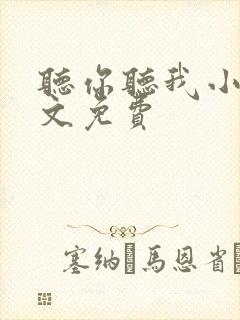 聽你聽我小
文免費
塞纳馬恩省